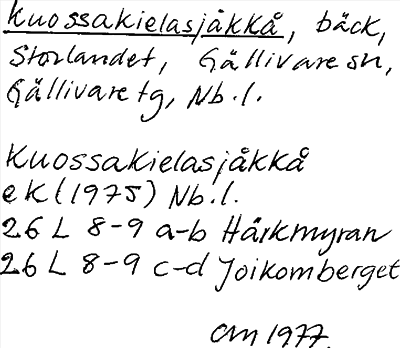 Kuossakielasjåkkå, bäck,
Storlandet, Gällivare sn,
Gällivare tg, Nb.l.
Kuossakielasjåkkå
ek (1975) Nb.l.
26 L 8-9 a-b Härkmyran
26 L 8-9 c-d Joikomberget
CM 1977.